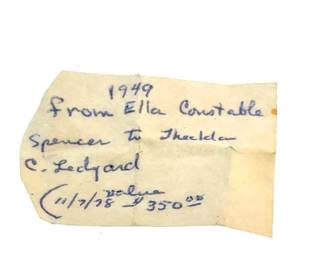 1949
from Ella Constable
Spencer to Theldda
C. Ledyard
(11/7/78 value $350.00